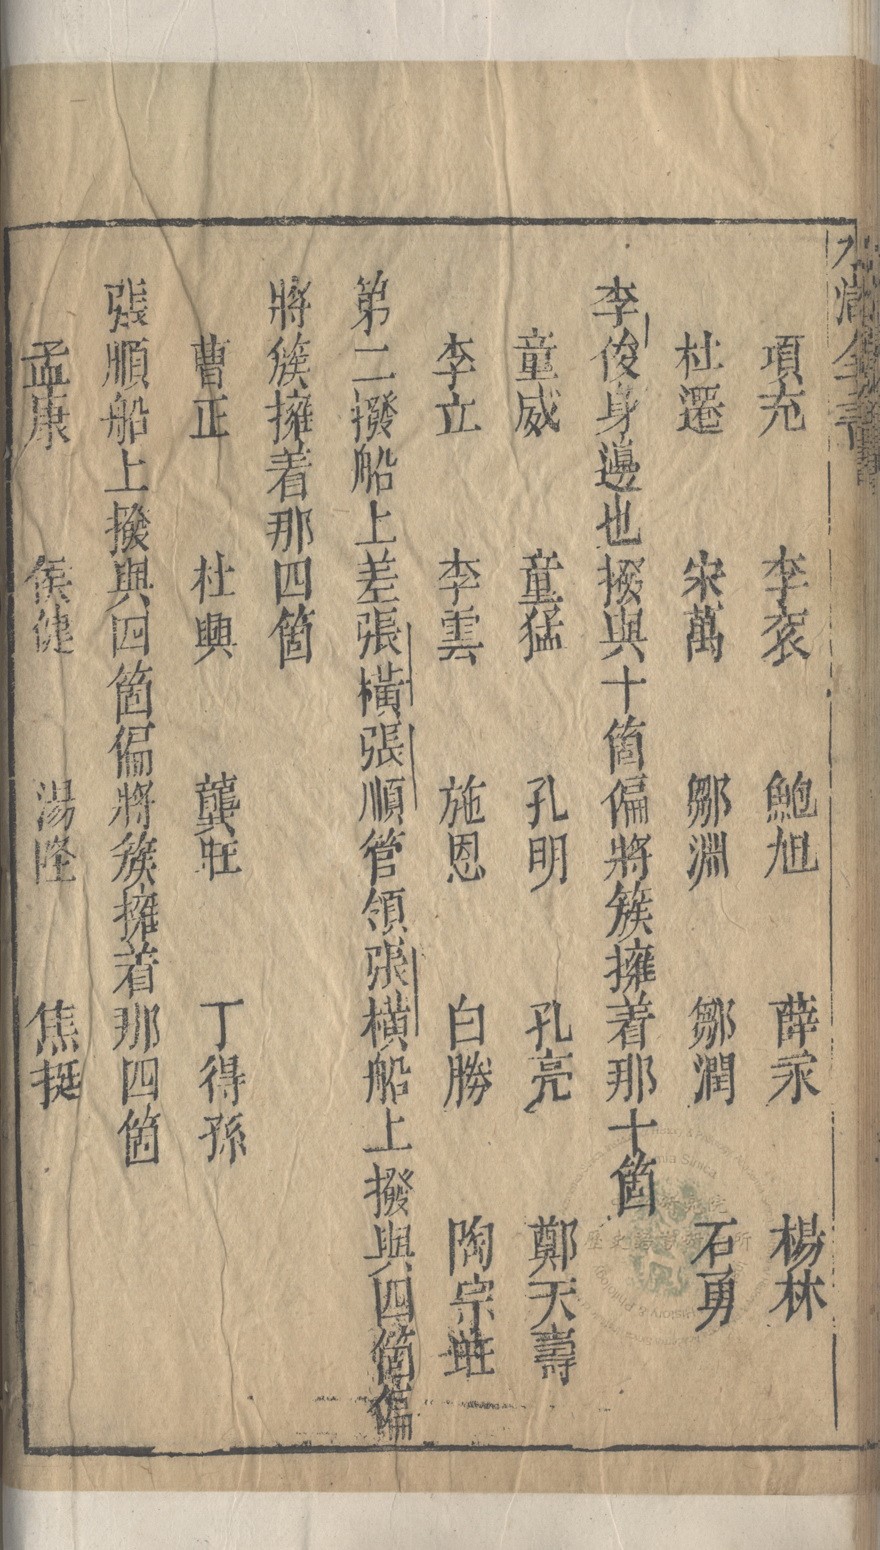 水滸全書
項充 李袞 鮑旭 薛永 楊林
杜遷 宋萬 鄒淵 鄒潤 石勇
李俊身邊也撥與十箇偏將簇擁着那十箇
童威 童猛 孔明 孔亮 鄭天壽
李立 李雲 施恩 白勝 陶宗旺
第二撥船上差張橫張順管領張橫船上撥與四箇偏
將簇擁着那四箇
曹正 杜興 龔旺 丁得孫
張順船上撥與四箇偏將簇擁着那四箇
孟康 侯健 湯隆 焦挺